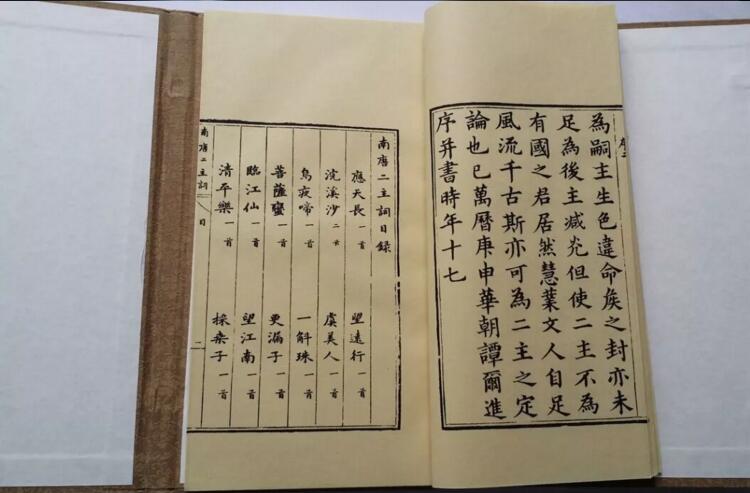 序二
為嗣主生色違命矦之封亦未
足為後主減光但使二主不為
有國之君居然慧業文人自足
風流千古斯亦可為二主之定
論也已萬曆庚申華朝譚爾進
序并書時年十七
南唐二主詞目錄
應天長 一首 望遠行 一首
浣溪沙 二首 虞美人 一首
烏夜啼 一首 一斛珠 一首
菩薩蠻 一首 更漏子 一首
臨江仙 一首 望江南 一首
清平樂 一首 採桑子 一首
南唐二主詞 目 二